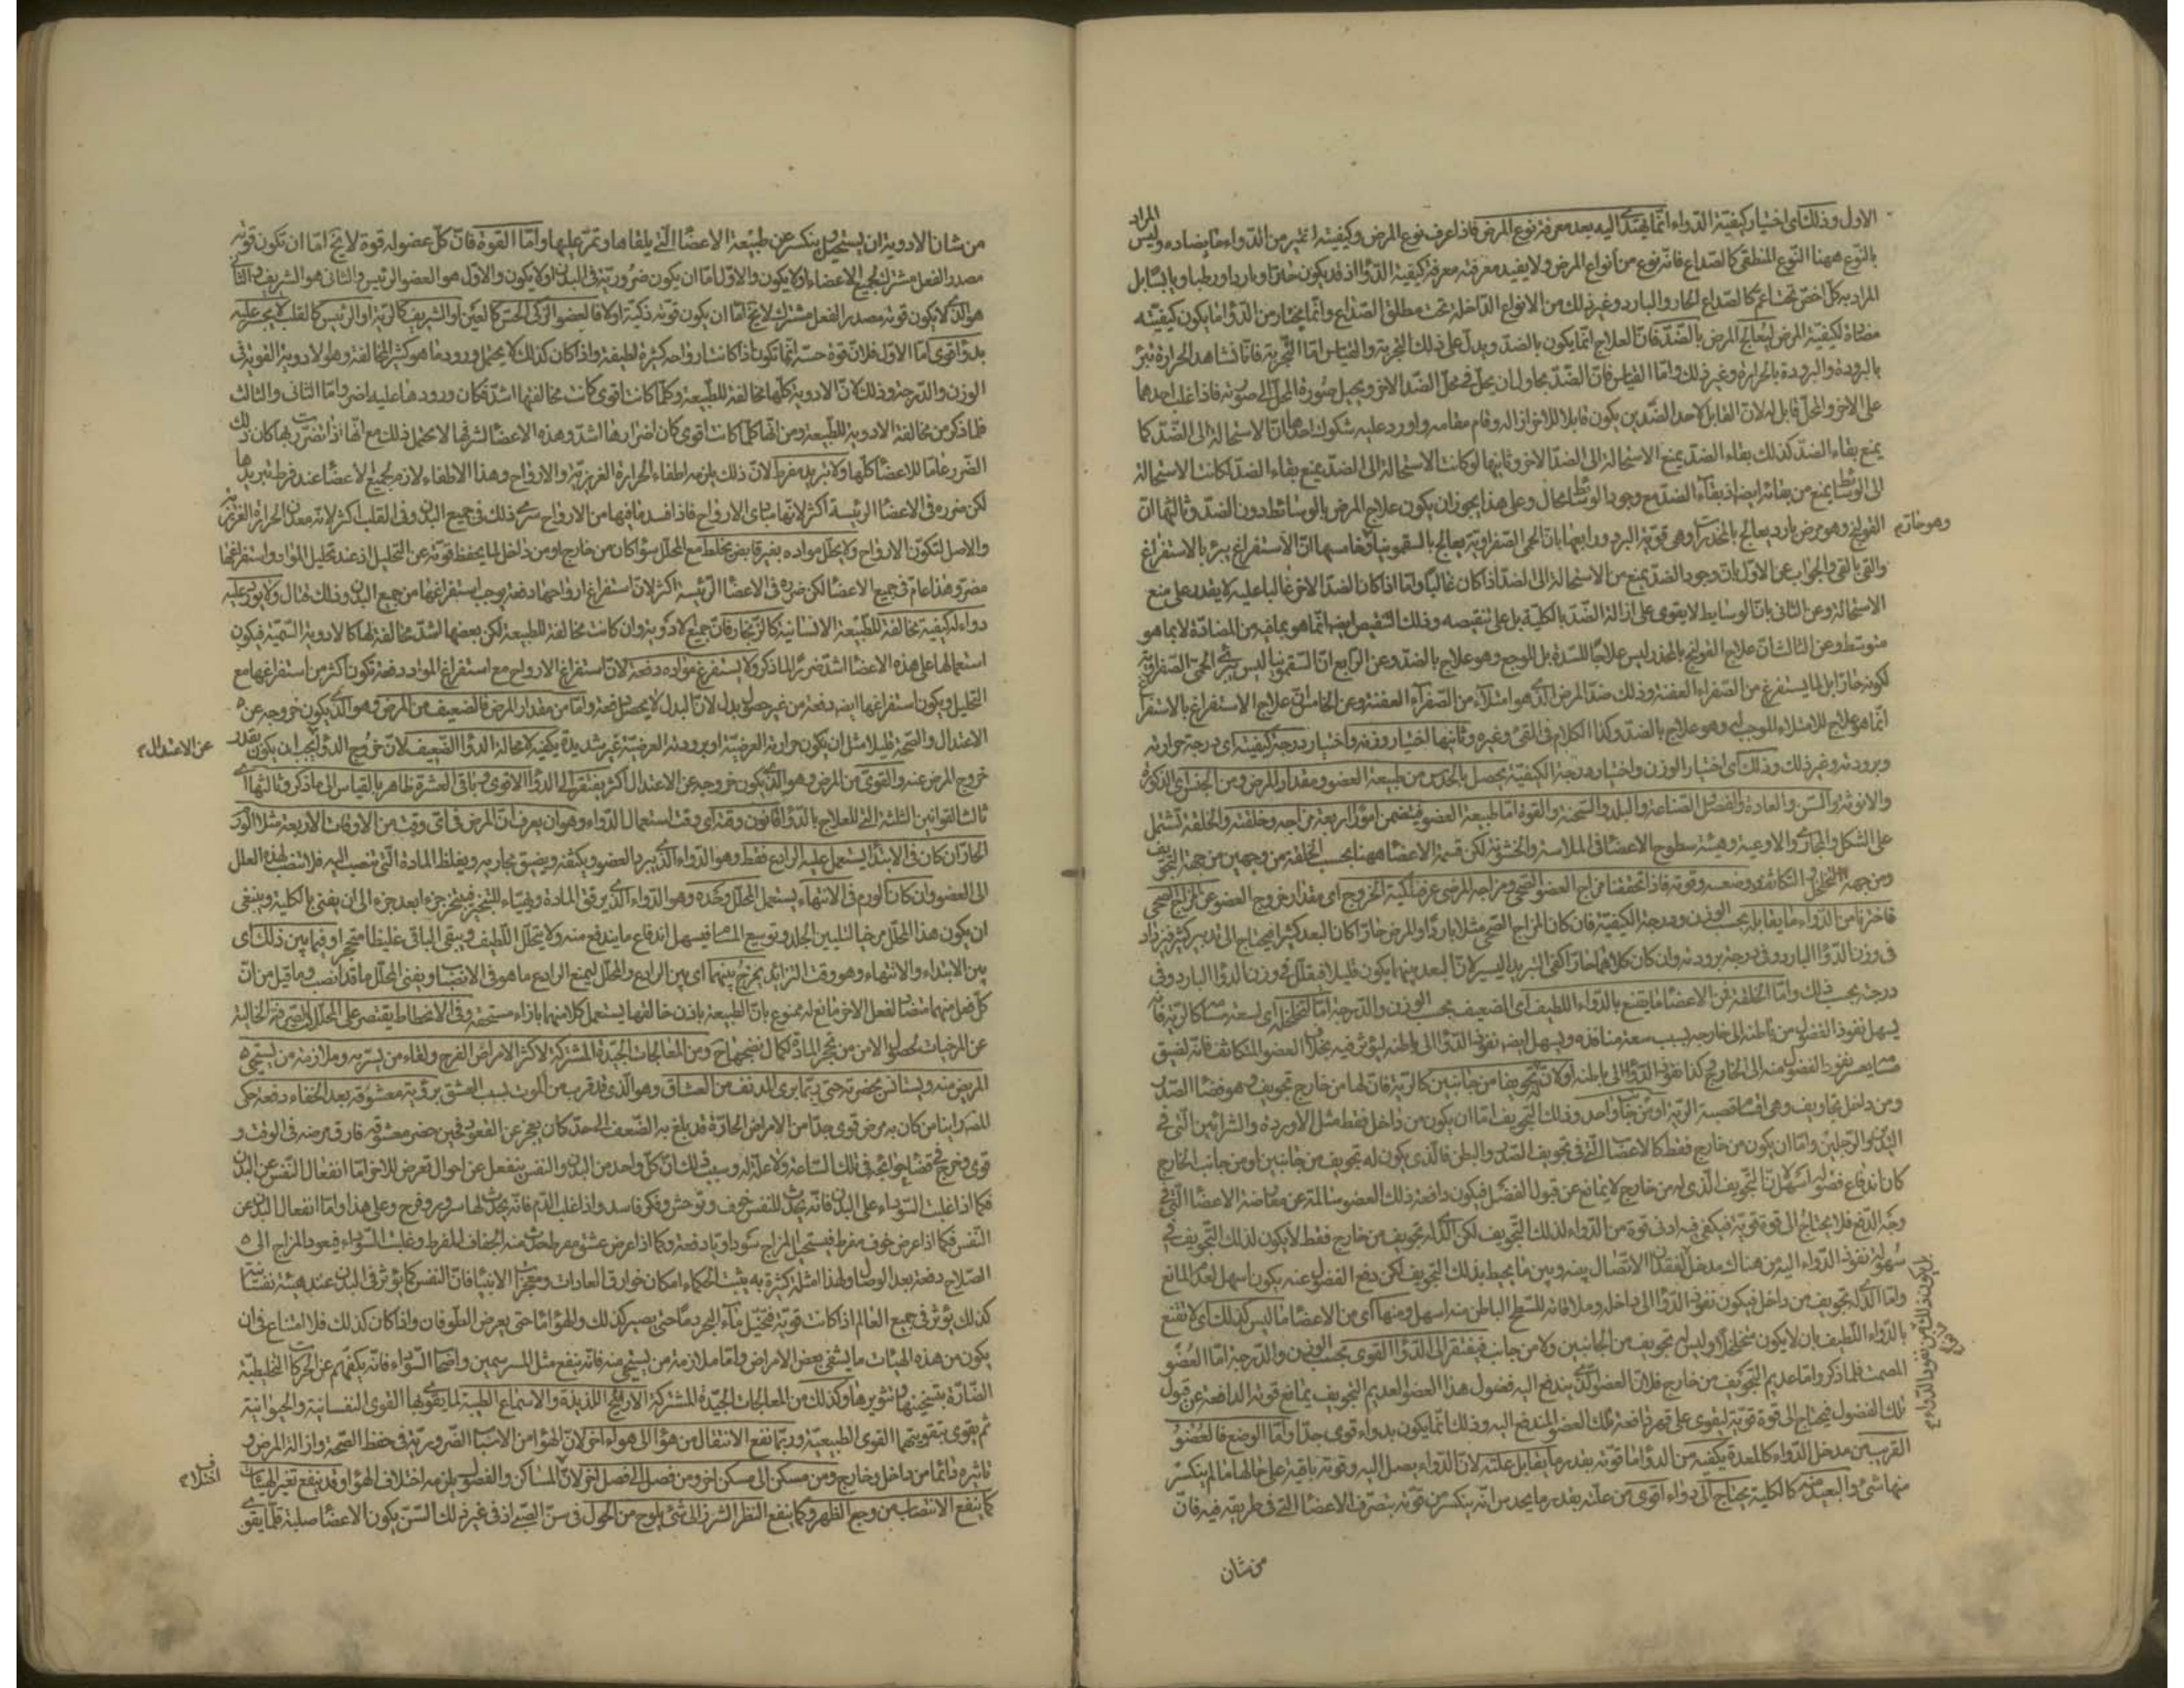 الاول وذلك اى اختيار كيفية الدواء انما يهتدى اليه بعد معرفة نوع المرض فاذا عرف نوع المرض وكيفيته اختير من الدواء ما يضاده وليس المراد
بالنوع ههنا النوع المنطقى كالصداع فانه نوع من أنواع المرض ولا يفيد معرفته معرفة كيفية الدواء اذ قد يكون حارا وباردا ورطبا ويابسا بل
المراد به كل اخص تحت اعم كالصداع الحار والبارد وغير ذلك من الانواع الداخلة تحت مطلق الصداع وانما يختار من الدواء ما يكون كيفيته
مضادة لكيفية المرض ليعالج المرض بالضد فان العلاج انما يكون بالضد ويدل على ذلك التجربة والقياس اما التجربة فانا نشاهد الحرارة تبرأ
بالبرودة والبرودة بالحرارة وغير ذلك واما القياس فان الضد يحاول ان يحل فى محل الضد الاخر ويحيل صورة المحل الى صورته فاذا غلب احدهما
على الاخر والمحل قابل له لان القابل لاحد الضدين يكون قابلا للاخر ازاله وقام مقامه واورد عليه شكوك احدها ان الاستحالة الى الضد كما
يمنع بقاء الضد كذلك بقاء الضد يمنع الاستحالة الى الضد الاخر وثانيها لو كانت الاستحالة الى الضد يمنع بقاء الضد لكانت الاستحالة
الى الوسائط يمنع من بقائه ايضا اذ بقاء الضد مع وجود الوسائط محال وعلى هذا يجوز ان يكون علاج المرض بالوسائط دون الضد وثالثها ان
القولنج وهو مرض بارد يعالج بالمخدرات وهى قوية البرد ورابعها بان الحمى الصفراوية يعالج بالسقمونيا وخامسها ان الاستفراغ يبرأ بالاستفراغ
وهو حار
والقى بالقى والجواب عن الاول بان وجود الضد يمنع من الاستحالة الى الضد اذا كان غالبا واما اذا كان الضد الاخر غالبا عليه لا يقدر على منع
الاستحالة وعن الثانى بان الوسايط لا يقوى على ازالة الضد بالكلية بل على تنقيصه وذلك التنقيص ايضا انما هو بما فيه من المضادة لا بما هو
متوسط وعن الثالث ان علاج القولنج بالمخدر ليس علاجا للسدة بل للوجع وهو علاج بالضد وعن الرابع ان السقمونيا ليس يبرئ الحمى الصفراوية
لكونه حارا بل لما يستفرغ من الصفراء العفنة وذلك ضد المرض الذى هو امتلاء من الصفراء العفنة وعن الخامس ان علاج الاستفراغ بالاستفراغ
انما هو علاج للامتلاء الموجب له وهو علاج بالضد وكذا الكلام فى القى وغيره وثانيها اختيار وزنه واختيار درجة كيفيته اى درجة حرارته
وبرودته وغير ذلك وذلك اى اختيار الوزن واختيار درجة الكيفية يحصل بالحدس من طبيعة العضو ومقدار المرض ومن الجنس اى الذكورة
والانوثة والسن والعادة والفصل والصناعة والبلد والسحنة والقوة اما طبيعة العضو فيتضمن امورا اربعة مزاجه وخلقته والخلقة تشتمل
على الشكل والمجارى والاوعية وهيئة سطوح الاعضاء فى الملاسة والخشونة لكن قسمة الاعضاء ههنا بحسب الخلقة من وجهين من جهة التجويف
ومن جهة التخلخل والتكاثف ووضعه وقوته فاذا تحققنا مزاج العضو الصحى ومزاجه المرضى عرفنا كمية الخروج اى مقدار خروج العضو عن المزاج الصحى
فاخترنا من الدواء ما يقابله بحسب الوزن ودرجة الكيفية فان كان المزاج الصحى مثلا باردا والمرض حارا كان البعد كثيرا فيحتاج الى تبريد كثير فيزاد
فى وزن الدواء البارد وفى درجة برودته وان كان كلاهما حارا كفى التبريد اليسير لان البعد بينهما يكون قليلا فيقلل فى وزن الدواء البارد وفى
درجته بحسب ذلك واما الخلقة فمن الاعضاء ما يقنع بالدواء اللطيف اى الضعيف بحسب الوزن والدرجة اما لتخلخله اى لسعة مسامه كالرية فانه
يسهل نفوذ الفضول من باطنه الى خارجه بسبب سعة منافذه ويسهل ايضا نفوذ الدواء الى باطنه ليؤثر فيه بخلاف العضو المتكاثف فانه لضيق
مسامه يعسر نفوذ الفضول منه الى الخارج وكذا نفوذ الدواء الى باطنه او لان له تجويفا من جانبين كالرية فان لها من خارج تجويف وهو فضاء الصدر
ومن داخل تجاويف وهى اقسام قصبة الرية او من جانب واحد وذلك التجويف اما ان يكون من داخل فقط مثل الاوردة والشرايين التى فى
اليدين والرجلين واما ان يكون من خارج فقط كالاعصاب التى فى تجويف الصدر والبطن فالذى يكون له تجويف من جانبين او من جانب الخارج
كان اندفاع فضوله اسهل لان التجويف الذى له من خارج لا يمانع عن قبول الفضل فيكون دافعة ذلك العضو سالمة عن معارضة الاعضاء التى فى
وجه الدفع فلا يحتاج الى قوة قوية فيكفى فيه ادنى قوة من الدواء لذلك التجويف لكن الذى له تجويف من خارج فقط لا يكون لذلك التجويف فى
سهولة نفوذ الدواء اليه من هناك مدخل لفقدان الاتصال بينه وبين ما يحيط بذلك التجويف لكن دفع الفضول عنه يكون اسهل لعدم المانع
واما الذى له تجويف من داخل فيكون نفوذ الدواء الى داخله وملاقاته للسطح الباطن منه اسهل ومنها اى من الاعضاء ما ليس كذلك اى لا تقنع
بالدواء اللطيف بان لا يكون متخلخلا وليس له تجويف من الجانبين ولا من جانب فيفتقر الى الدواء القوى بحسب الوزن والدرجة اما العضو
المصمت فلما ذكر واما عديم التجويف من خارج فلان العضو الذى يندفع اليه فضول هذا العضو لعديم التجويف يمانع قوته الدافعة عن قبول
تلك الفضول فيحتاج الى قوة قوية ليقوى على قهر دافعة تلك العضو المندفع اليه وذلك انما يكون بدواء قوى جدا واما الوضع فالعضو
القريب من مدخل الدواء كالمعدة يكفيه من الدواء ما قوته بقدر ما يقابل علته لان الدواء يصل اليه وقوته باقية على حالها ما لم ينكسر
منها شئ والبعيد منه كالكلية يحتاج الى دواء اقوى من علته بقدر ما يحدس انه ينكسر من قوته بتصرف الاعضاء التى فى طريقه فيه فان
من شان
من شان الادوية ان يستحيل وينكسر عن طبيعة الاعضاء التى يلقاها وتمر عليها واما القوة فان كل عضو له قوة لا يخ اما ان تكون قوته
مصدر الفعل مشترك لجميع الاعضاء او لا يكون والاول اما ان يكون ضرورية فى البدن او لا يكون والاول هو العضو الرئيس والثانى هو الشريف والثالث
هو الذى لا يكون قوته مصدر الفعل مشترك لا يخ اما ان يكون قوته ذكية او لا فالعضو الذكى الحس كالعين او الشريف كالرية او الرئيس كالقلب لا يجسر عليه
بدواء قوى اما الاول فلان قوة حسه انما تكون اذا كانت ارواحه كثيرة لطيفة واذا كان كذلك لا يحتمل ورود ما هو كثير المخالفة وهو الادوية القوية فى
الوزن والدرجة وذلك لان الادوية كلها مخالفة للطبيعة وكلما كانت اقوى كانت مخالفتها اشد فكان ورودها عليه اضر واما الثانى والثالث
فلما ذكر من مخالفة الادوية للطبيعة ومن انها كلما كانت اقوى كان اضرارها اشد وهذه الاعضاء لشرفها لا يحتمل ذلك مع انها اذا تضررت بها كان ذلك
الضرر عاما للاعضاء كلها ولا تبريد مفرط لان ذلك يلزمه اطفاء الحرارة الغريزية والارواح وهذا الاطفاء لازم لجميع الاعضاء عند فرط تبريدها
لكن ضرره فى الاعضاء الرئيسة اكثر لانها مبادى الارواح فاذا فسد ما فيها من الارواح سرى ذلك فى جميع البدن وفى القلب اكثر لانه معدن الحرارة الغريزية
والاصل لتكون الارواح ولا يحلل مواده بغير قابض يخلط مع المحلل سواء كان من خارج او من داخل لما يحفظ قوته عن التحليل اذ عند تحليل المواد واستفراغها
مضر وهذا عام فى جميع الاعضاء لكن ضرره فى الاعضاء الرئيسة اكثر لان استفراغ ارواحها دفعة يوجب استفراغها من جميع البدن وذلك قتال ولا يورد عليه
دواء له كيفية مخالفة للطبيعة الانسانية كالزنجار فان جميع الادوية وان كانت مخالفة للطبيعة لكن بعضها اشد مخالفة لها كالادوية السمية فيكون
استعمالها على هذه الاعضاء اشد ضررا لما ذكر ولا يستفرغ مواده دفعة لان استفراغ الارواح مع استفراغ المواد دفعة تكون اكثر من استفراغها مع
التحليل ويكون استفراغها ايضا دفعة من غير حصول بدل لان البدل لا يحصل دفعة واما من مقدار المرض فالضعيف من المرض وهو الذى يكون خروجه عن
الاعتدال والصحة قليلا مثل ان يكون حرارته العرضية او برودته العرضية غير شديدة يكفيه لا محالة الدواء الضعيف لان خروج الدواء يجب ان يكون بقدر
عن الاعتدال
خروج المرض عنه والقوى من المرض وهو الذى يكون خروجه عن الاعتدال اكثر يفتقر الى الدواء الاقوى وباقى العشرة ظاهر بالقياس الى ما ذكر وثالثها اى
ثالث القوانين الثلثة التى للعلاج بالدواء قانون وقته اى وقت استعمال الدواء وهو ان يعرف ان المرض فى اى وقت من الاوقات الاربعة مثلا الورم
الحار ان كان فى الابتداء يستعمل عليه الرادع فقط وهو الدواء الذى يبرد العضو ويكثفه ويضيق مجاريه ويغلظ المادة التى تنصب اليه فلا تنصب لهذه العلل
الى العضو وان كان الورم فى الانتهاء يستعمل المحلل وحده وهو الدواء الذى يرقق المادة ويهيئاء للتبخير فيتبخر جزء بعد جزء الى ان يفنى بالكلية وينبغى
ان يكون هذا المحلل مرخيا لتليين الجلد وتوسيع المسام فيسهل اندفاع ما يندفع منه ولا يتحلل اللطيف ويبقى الباقى غليظا متحجرا وفيما بين ذلك اى
بين الابتداء والانتهاء وهو وقت التزايد يمزج بينهما اى بين الرادع والمحلل ليمنع الرادع ما هو فى الانصباب ويفنى المحلل ما قد انصب وما قيل من ان
كل فعل منهما مضاد لفعل الاخر مانع له ممنوع بان الطبيعة باذن خالقها يستعمل كلا منهما بازاء مستحقه وفى الانحطاط يقتصر على المحلل الصرفة الخالية
عن المرخيات لحصول الامن من تحجر المادة لكمال نضجها ومن المعالجات الجيدة المشتركة لاكثر الامراض الفرح ولقاء من يسر به وملازمة من يستحى
المريض منه ويستانس بحضرته حتى ربما يبرئ المدنف من العشاق وهو الذى قد قرب من الموت بسبب العشق برؤية معشوقه بعد الخفاء دفعة حكى
المص راينا من كان به مرض قوى جدا من الامراض الحادة قد بلغ به الضعف الى حد كان يعجز عن القعود فحين حضر معشوقه فارق مرضه فى الوقت و
قوى وخرج فى قضاء حوائجه فى تلك الساعة ولا علة له وسبب ذلك ان كل واحد من البدن والنفس ينفعل عن احوال تعرض للاخر اما انفعال النفس عن البدن
فكما اذا غلبت السوداء على البدن فانه يحدث للنفس خوف وتوحش وفكر فاسد واذا غلب الدم فانه يحدث لها سرور وفرح وعلى هذا واما انفعال البدن عن
النفس فكما اذا عرض خوف مفرط فيستحيل المزاج سوداويا دفعة وكما اذا عرض عشق مفرط حدث منه الجفاف المفرط وغلبت السوداء فيعود المزاج الى
الصلاح دفعة بعد الوصال ولهذا امثلة كثيرة به يثبت الحكماء امكان خوارق العادات ومعجزات الانبياء فان النفس كما يؤثر فى البدن عند هيئة نفسانية
كذلك يؤثر فى جميع العالم اذا كانت قوية فتخيل ماء البحر دما حتى يصير كذلك والهواء ماء حتى يعرض الطوفان واذا كان كذلك فلا امتناع فى ان
يكون من هذه الهيئات ما يشفى بعض الامراض واما ملازمة من يستحى منه فانه ينفع مثل المسرسمين واصحاب السوداء فانه يكفهم عن الحركات التخليطية
الضارة بتسخينها وتثويرها وكذلك من المعالجات الجيدة المشتركة الاراييح اللذيذة والاسماع الطيبة لما يقوى بها القوى النفسانية والحيوانية
ثم يقوى بتقويتهما القوى الطبيعية وربما نفع الانتقال من هواء الى هواء اخر لان الهواء من الاسباب الضرورية فى حفظ الصحة وازالة المرض و
تاثيره دائما من داخل وخارج ومن مسكن الى مسكن اخر ومن فصل الى فصل اخر لان المساكن والفصول يلزمه اختلاف الهواء وقد ينفع تغير الهيئات
كما ينفع الانتصاب من وجع الظهر وكما ينفع النظر الشزر الى شئ يلوح من الحول فى سن الصبى اذ فى غير ذلك السن يكون الاعضاء صلبة قلما يقوى